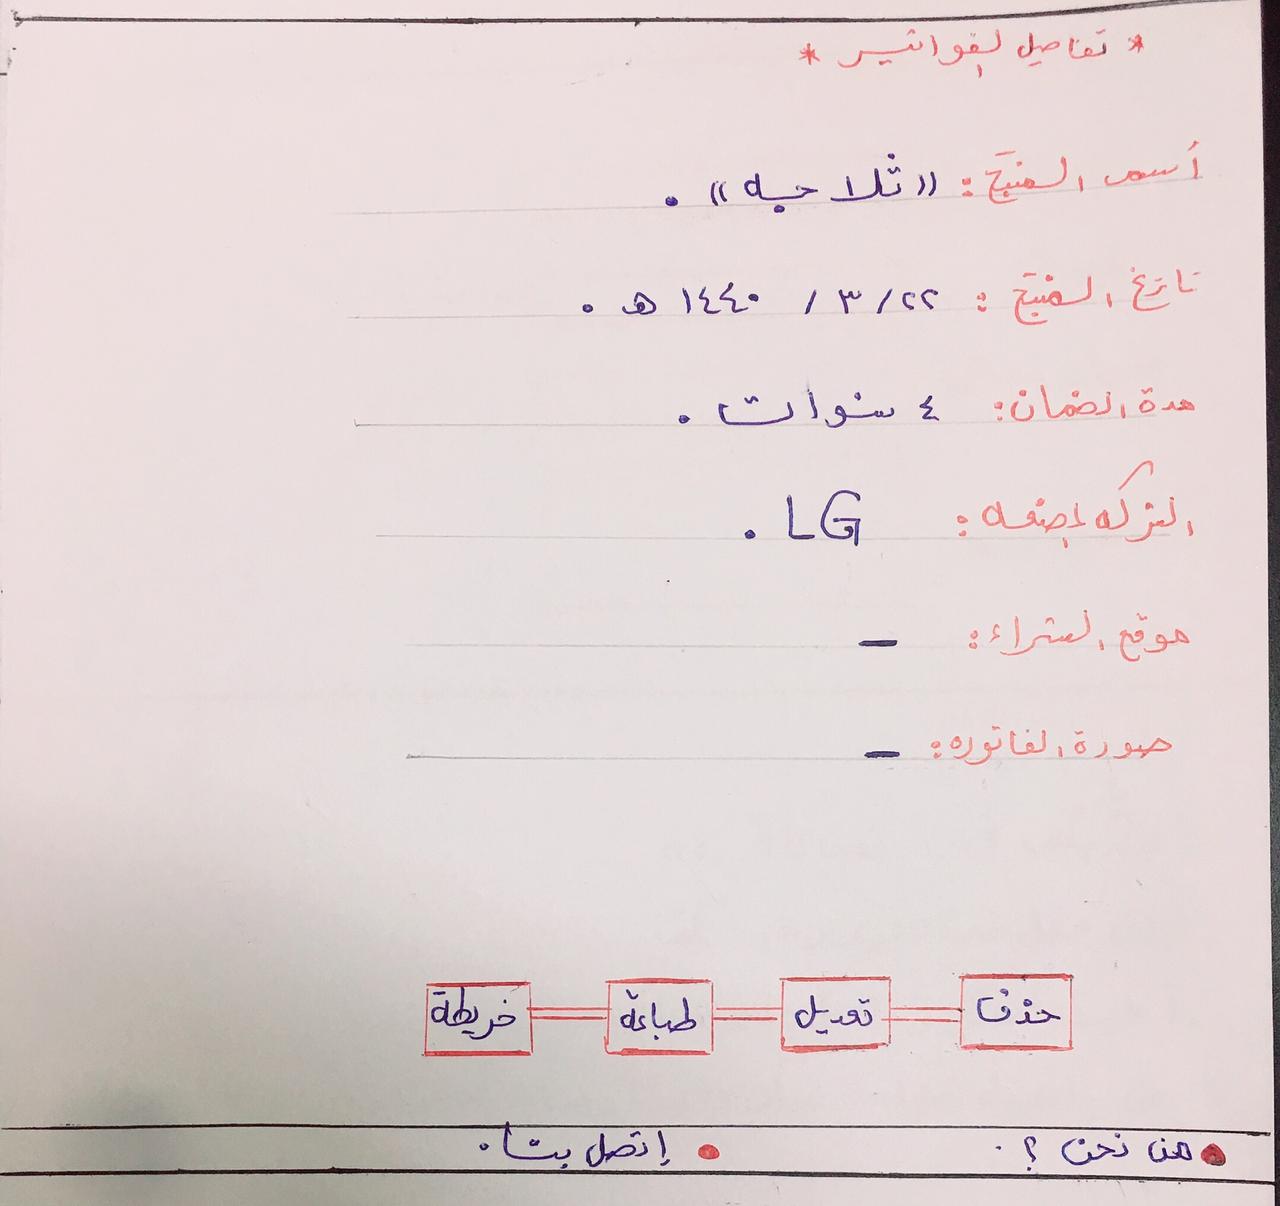 * تفاصيل الفواتير *
أسم المنتج: «ثلاجه».
تاريخ المنتج: ٢٢/ ٣ / ١٤٤٠ هـ.
مدة الضمان: ٤ سنوات.
الشركه المصنعه: LG.
موقع الشراء: -
صورة الفاتوره: -
حذف تعديل طباعة خريطة
• من نحن ؟. • إتصل بنا.